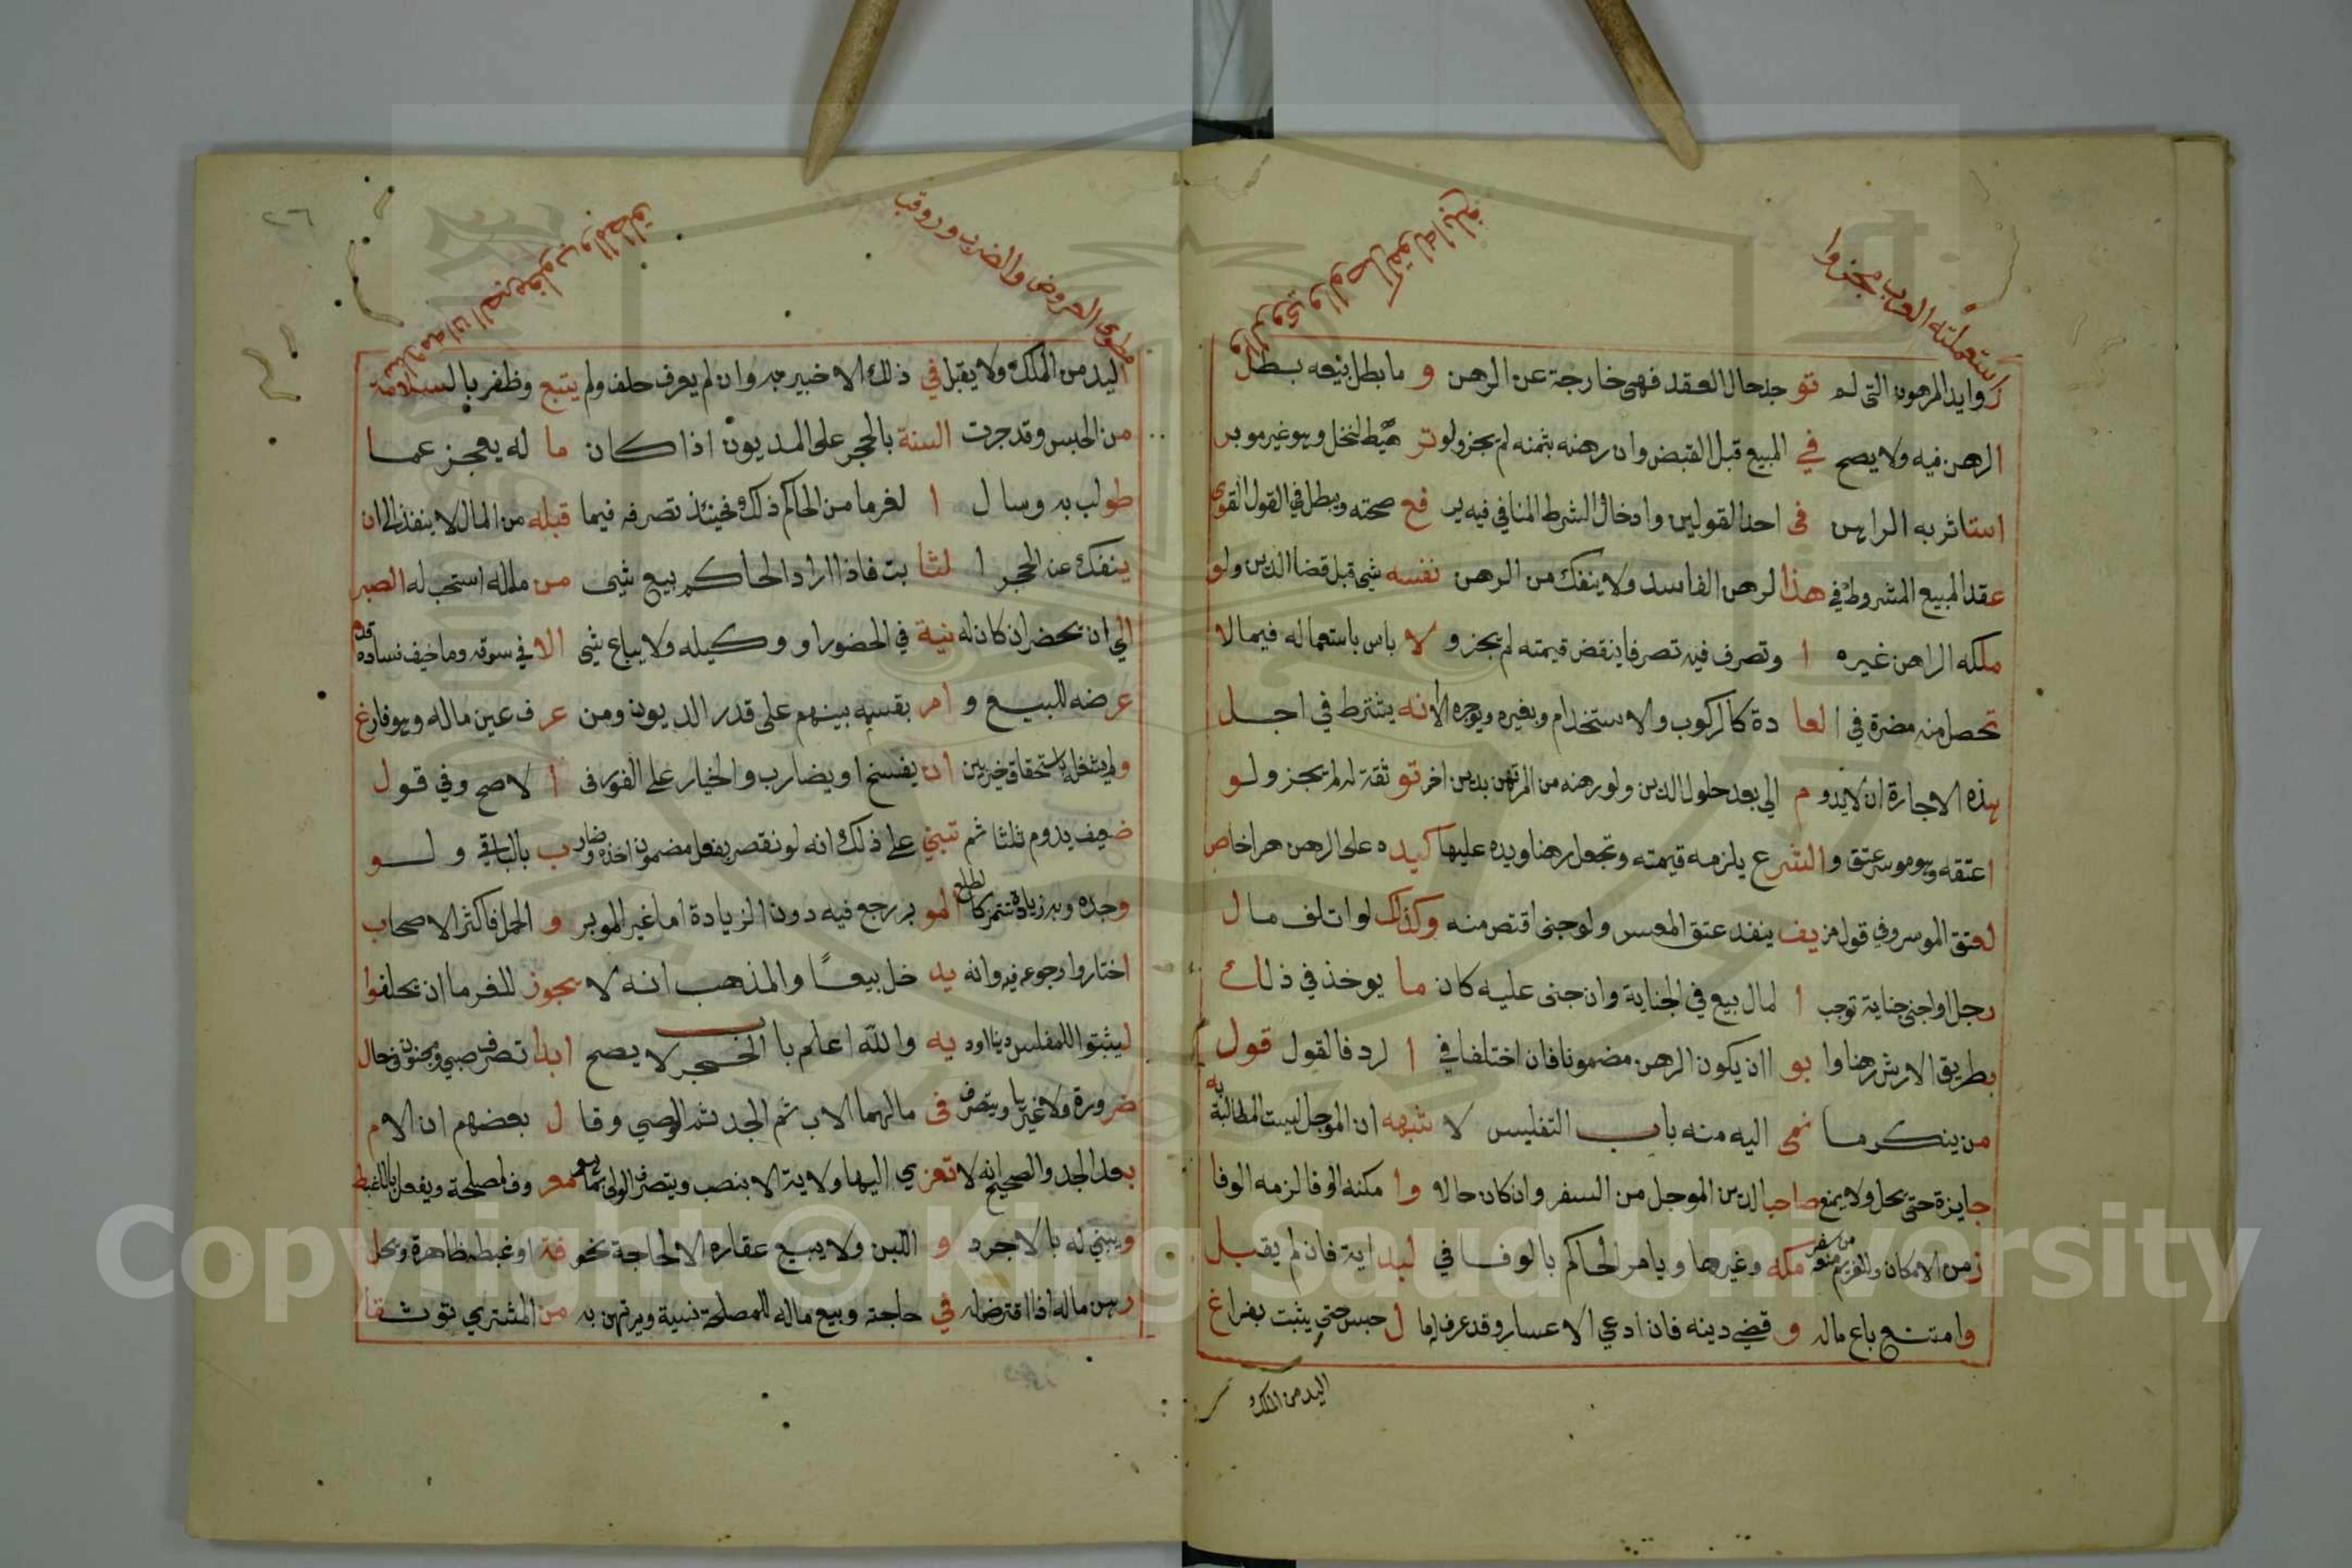 استعملته العرب مجزوا
زوايد المرهون التي لم تو جد حال العقد فهي خارجة عن الرهن و ما بطل بيعه بطل
الرهن فيه ولا يصح في المبيع قبل القبض وان رهنه بثمنه لم يجز ولو تر هيط لنخل وهو غير موبر
استاثر به الراهن في احد القولين وادخال الشرط المنافي فيه ير فع صحته ويبطل في القول القوي
عقد المبيع المشروط في هذا لرهن الفاسد ولا ينفك من الرهن نفسه شي قبل قضا الدين ولو
ملكه الراهن غيره ا وتصرف فيه تصرفا ينقض قيمته لم يجز و لا باس باستعماله فيما لا
تحصل منه مضرة في ا لعا دة كالركوب والاستخدام وبغيره ويوجره الا نه يشترط في اجل
هذه الاجارة ان لا يدو م الي بعد حلول الدين ولو رهنه من المرتهن بدين اخر تو ثقة له لم يجز ولو
اعتقه وهو موسر عتق و الشر ع يلزمه قيمته وتجعل رهنا ويده عليها كيد ه على الرهن هر اخاص
لعتق الموسر وفي قول مز يف ينفد عتق المعسر ولو جنى اقتص منه وكذلك لو اتلف مال
رجل او اجنى جناية توجب ا لمال بيع في الجناية وان جنى عليه كان ما يوخذ في ذلك
بطريق الارش رهنا وا بو اان يكون الرهن مضمونا فان اختلفا في ا لرد فالقول قول
من ينكر ما نمى اليه منه باب التفليس لا شبهه ان الموجل ليست المطالبة به
جايزة حتى يحل ولا يمنع صاحب الدين الموجل من السفر وان كان حالا وا مكنه الوفا لزمه الوفا
زمن الامكان وللغريم منعه من سفر مكه وغيرها ويامر الحاكم بالوفا في لبد اية فان لم يقبل
وامتنع باع ماله و قضي دينه فان ادعي الاعسار وقد عرف له ما ل حبس حتى يثبت بفراغ
اليد من الملك
العروض والضرب ورو وقب
اليد من الملك ولا يقبل في ذلك الا خبير به وان لم يعرف حلف ولم يتبع وظفر بالسلامة
من الحبس وقد جرت السنة بالحجر على المديون اذا كان ما له يعجز عما
طولب به وسال ا لغرما من الحاكم ذلك فحينئذ تصرفه فيما قبله من المال لا ينفذ الى ان
ينفك عن الحجر ا لثا بت فاذا اراد الحاكم بيع شيى من ماله استحب له الصبر
الي ان يحضر ان كان له نية في الحضور او وكيله ولا يباع شي الا في سوقه وما خيف فساده قدم
عرضه للبيع و امر بقسمه بينهم على قدر الديون ومن عر ف عين ماله وهو فارغ
ولم يتعلق به استحقاق خير بين ان يفسخ او يضارب والخيار على الفور في ا لاصح وفي قول
ضعيف يدوم ثلثا ثم تبني على ذلك انه لو نقص بفعل مضمون اخذه وضار ب بالباقي ولو
وجده وبه زيادة تتميز كالطلع المو بر رجع فيه دون الزيادة اما غير الموبر و الحمل فاكثر الاصحاب
اختاروا رجوعه فيه وانه يد خل بيعا والمذهب انه لا يجوز للغرما ان يحلفوا
ليثبتوا للمفلس دينا اود يه والله اعلم باب الحجر لا يصح ابدا تصرف صبي ومجنون في حال
ضرورة ولا غيرها ويتصرف في مالهما الاب ثم الجد ثم الوصي وقا ل بعضهم ان الام
بعد الجد والصحيح انه لا تعز ي اليها ولاية الا بنصب ويتصرف الولي بما هو معر وف لمصلحة ويفعل بالاغبط
ويبني له بالاجر د و اللبن ولا يبيع عقاره الا لحاجة نحو فة او غبطة ظاهرة ويحل
رهن ماله اذا اقترض له في حاجة وبيع ماله للمصلحة نسية ويرتهن به من المشتري توثقا
Copyright © King Saud University